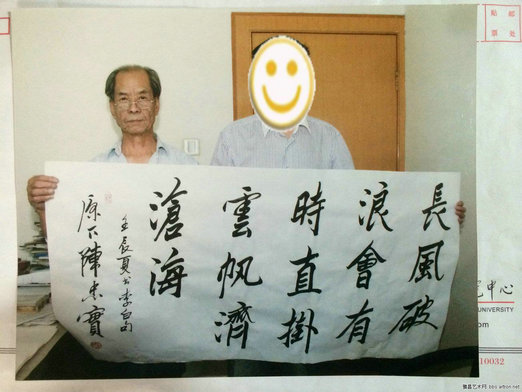 長風破
浪會有
時直掛
雲帆濟
滄海
壬辰夏书李白句
原下陳忠實
中心
UNIVERSITY
10032
雅昌艺术网 bbs.artron.net